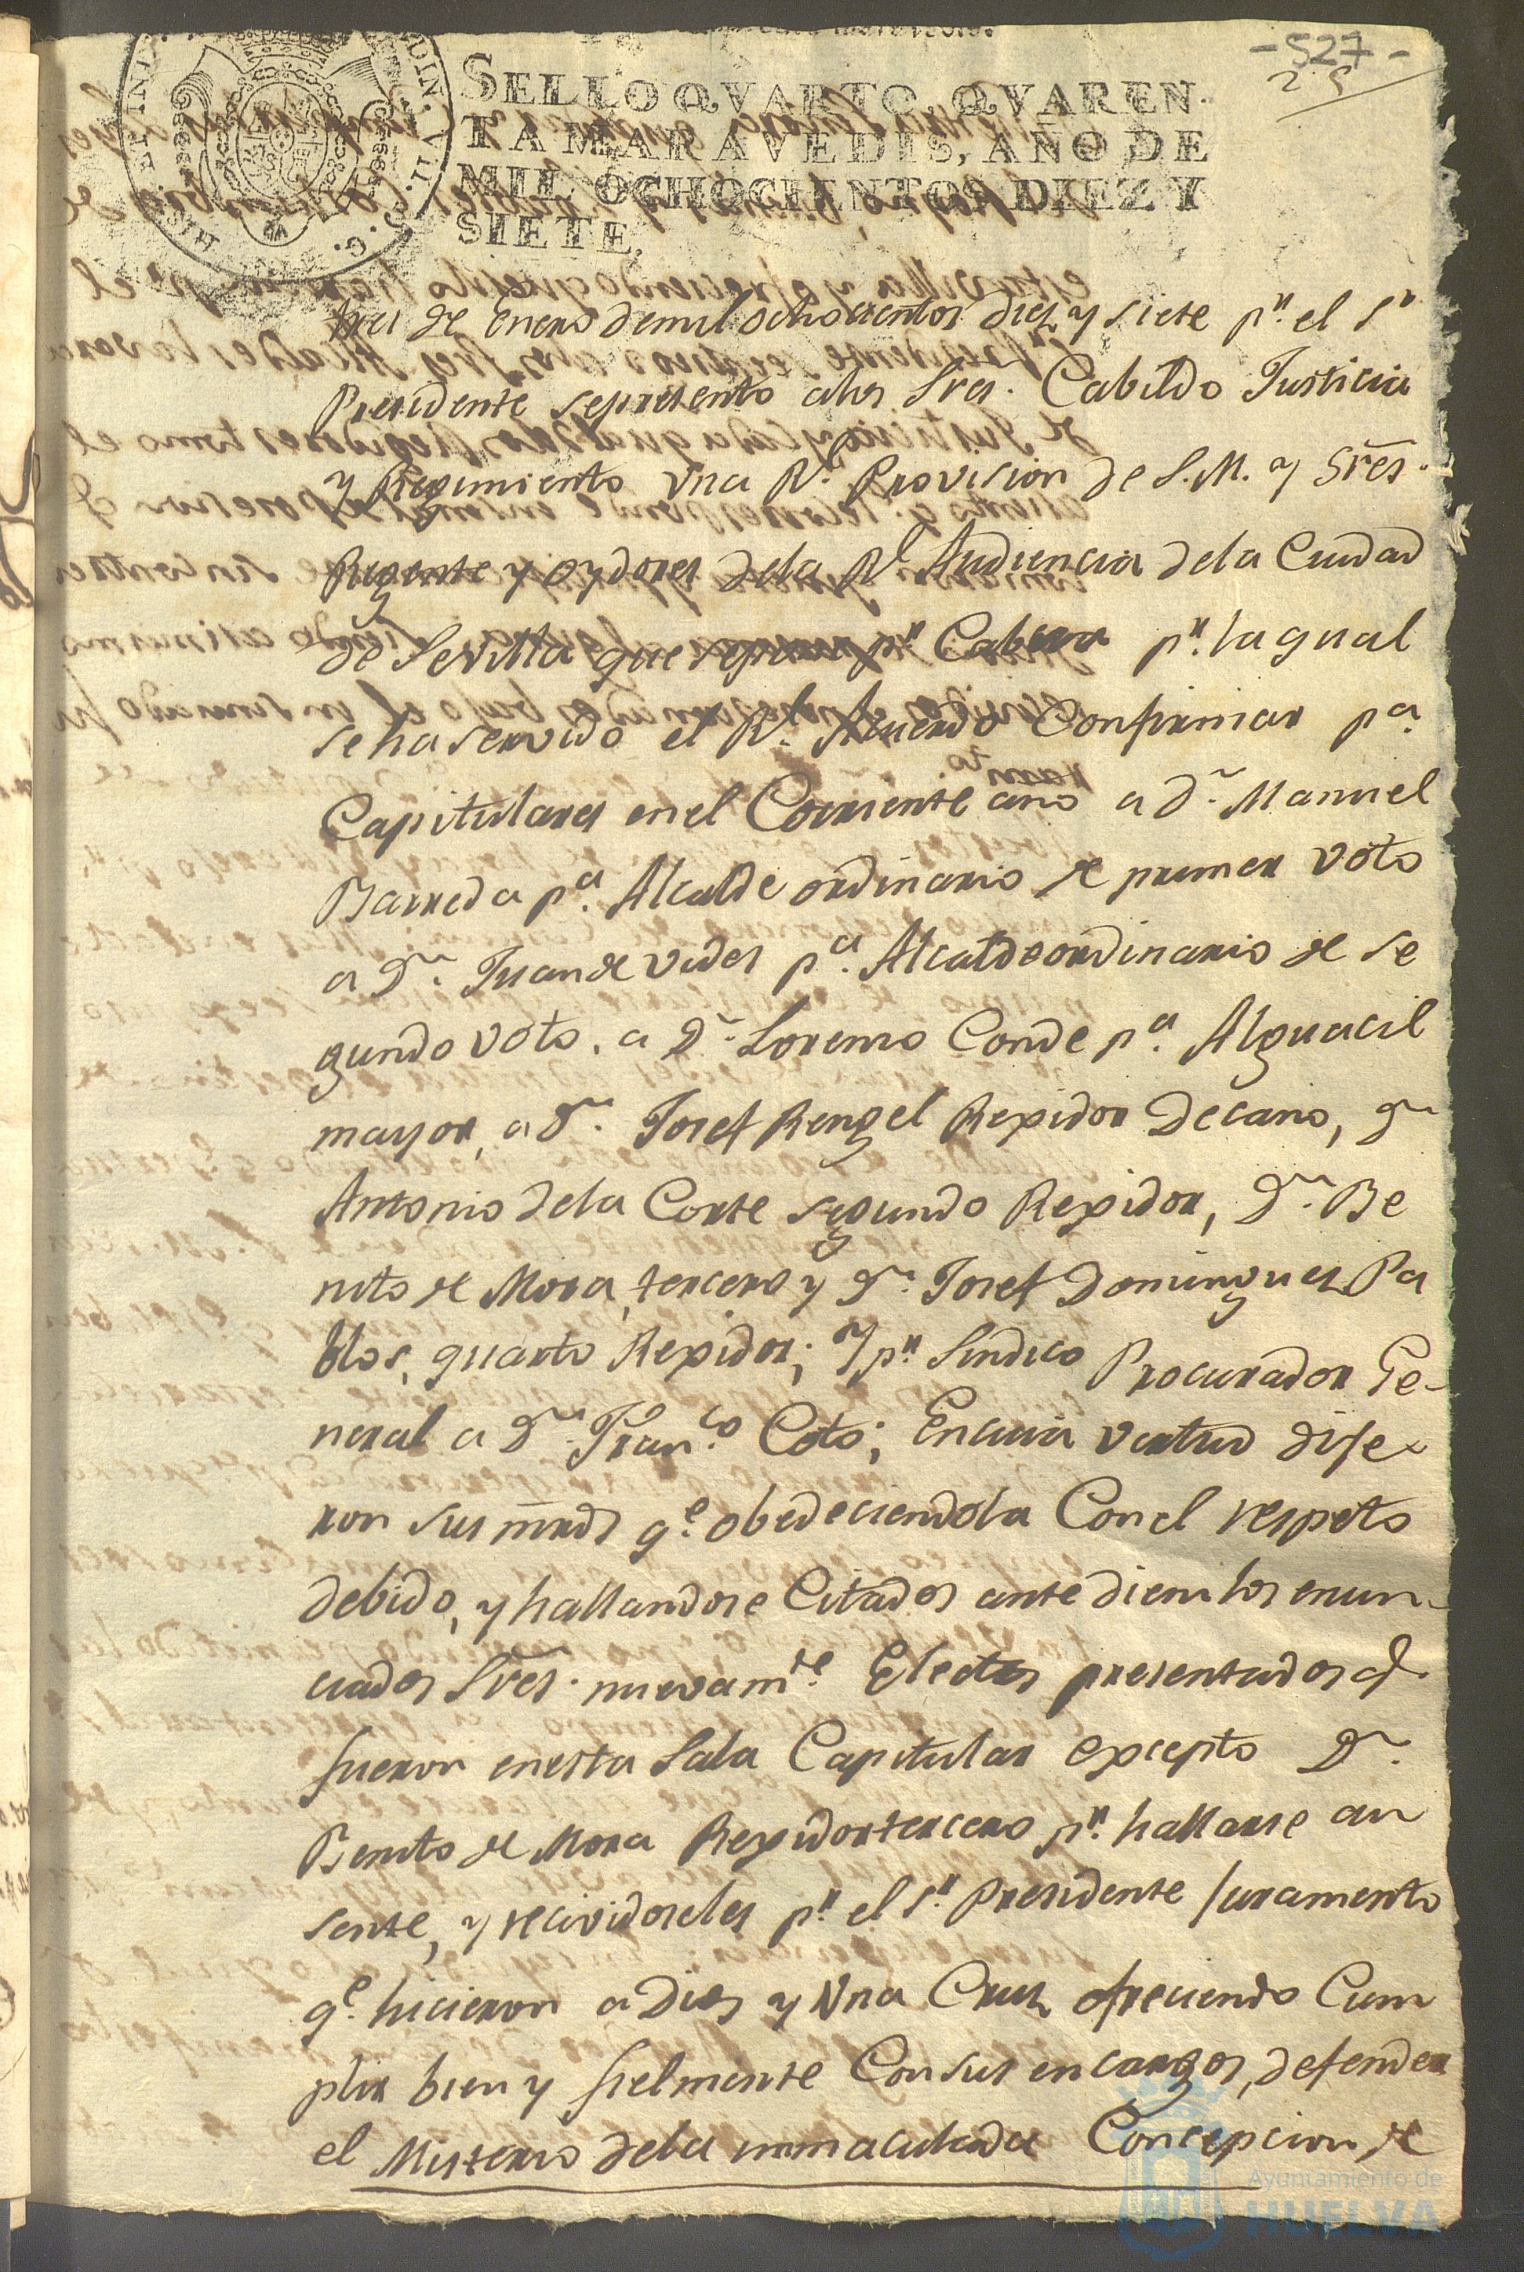 -527-
25
SELLO QVARTO, QVAREN-
TA MARAVEDIS, AÑO DE
MIL OCHOCIENTOS DIEZ Y
SIETE.
HISP. ET IND.
tres de Enero demil ochocientos diez y siete pr. el Sr.
Presidente sepresento alos Sres. Cabildo Justicia
y Regimiento Una Rl. Provision de S.M. y Sres.
Regente y oydores dela Rl. Audiencia dela Ciudad
de Sevilla que pr. Cabeza pr. la qual
seha servido el Rl. Acuerdo Confirmar pa.
Capitulares enel Corriente año a Dn. Manuel
Barreda pa. Alcalde ordinario de primer voto
a Dn. Juan de Vides pa. Alcalde ordinario de se
gundo voto. a Dn. Lorenzo Conde pa. Alguacil
mayor, a Dn. Josef Rengel Rexidor Decano, Dn
Antonio dela Corte segundo Rexidor, Dn. Be
nito de Mora, tercero y Dn. Josef Dominguez Pa
blos, quarto Rexidor; Y pr. Sindico Procurador Ge-
neral a Dn. Franco. Coto; Encuia vertud dije-
ron sus mrds qe. obedeciendola Conel respeto
debido, y hallandose Citados ante diem los enun-
ciados Sres. nuevamte. Electos presentados q.
fueron enesta Sala Capitular excepto Dn.
Benito de Mora Rexidor tercero pr. hallarse au
sente, y recividoseles pr. el Sr. Presidente juramento
qe. hicieron a Dios y Una Cruz ofreciendo Cum
plir bien y fielmente Con sus encargos, defender
el Misterio dela inmaculada Concepcion de
Ayuntamiento de
HUELVA